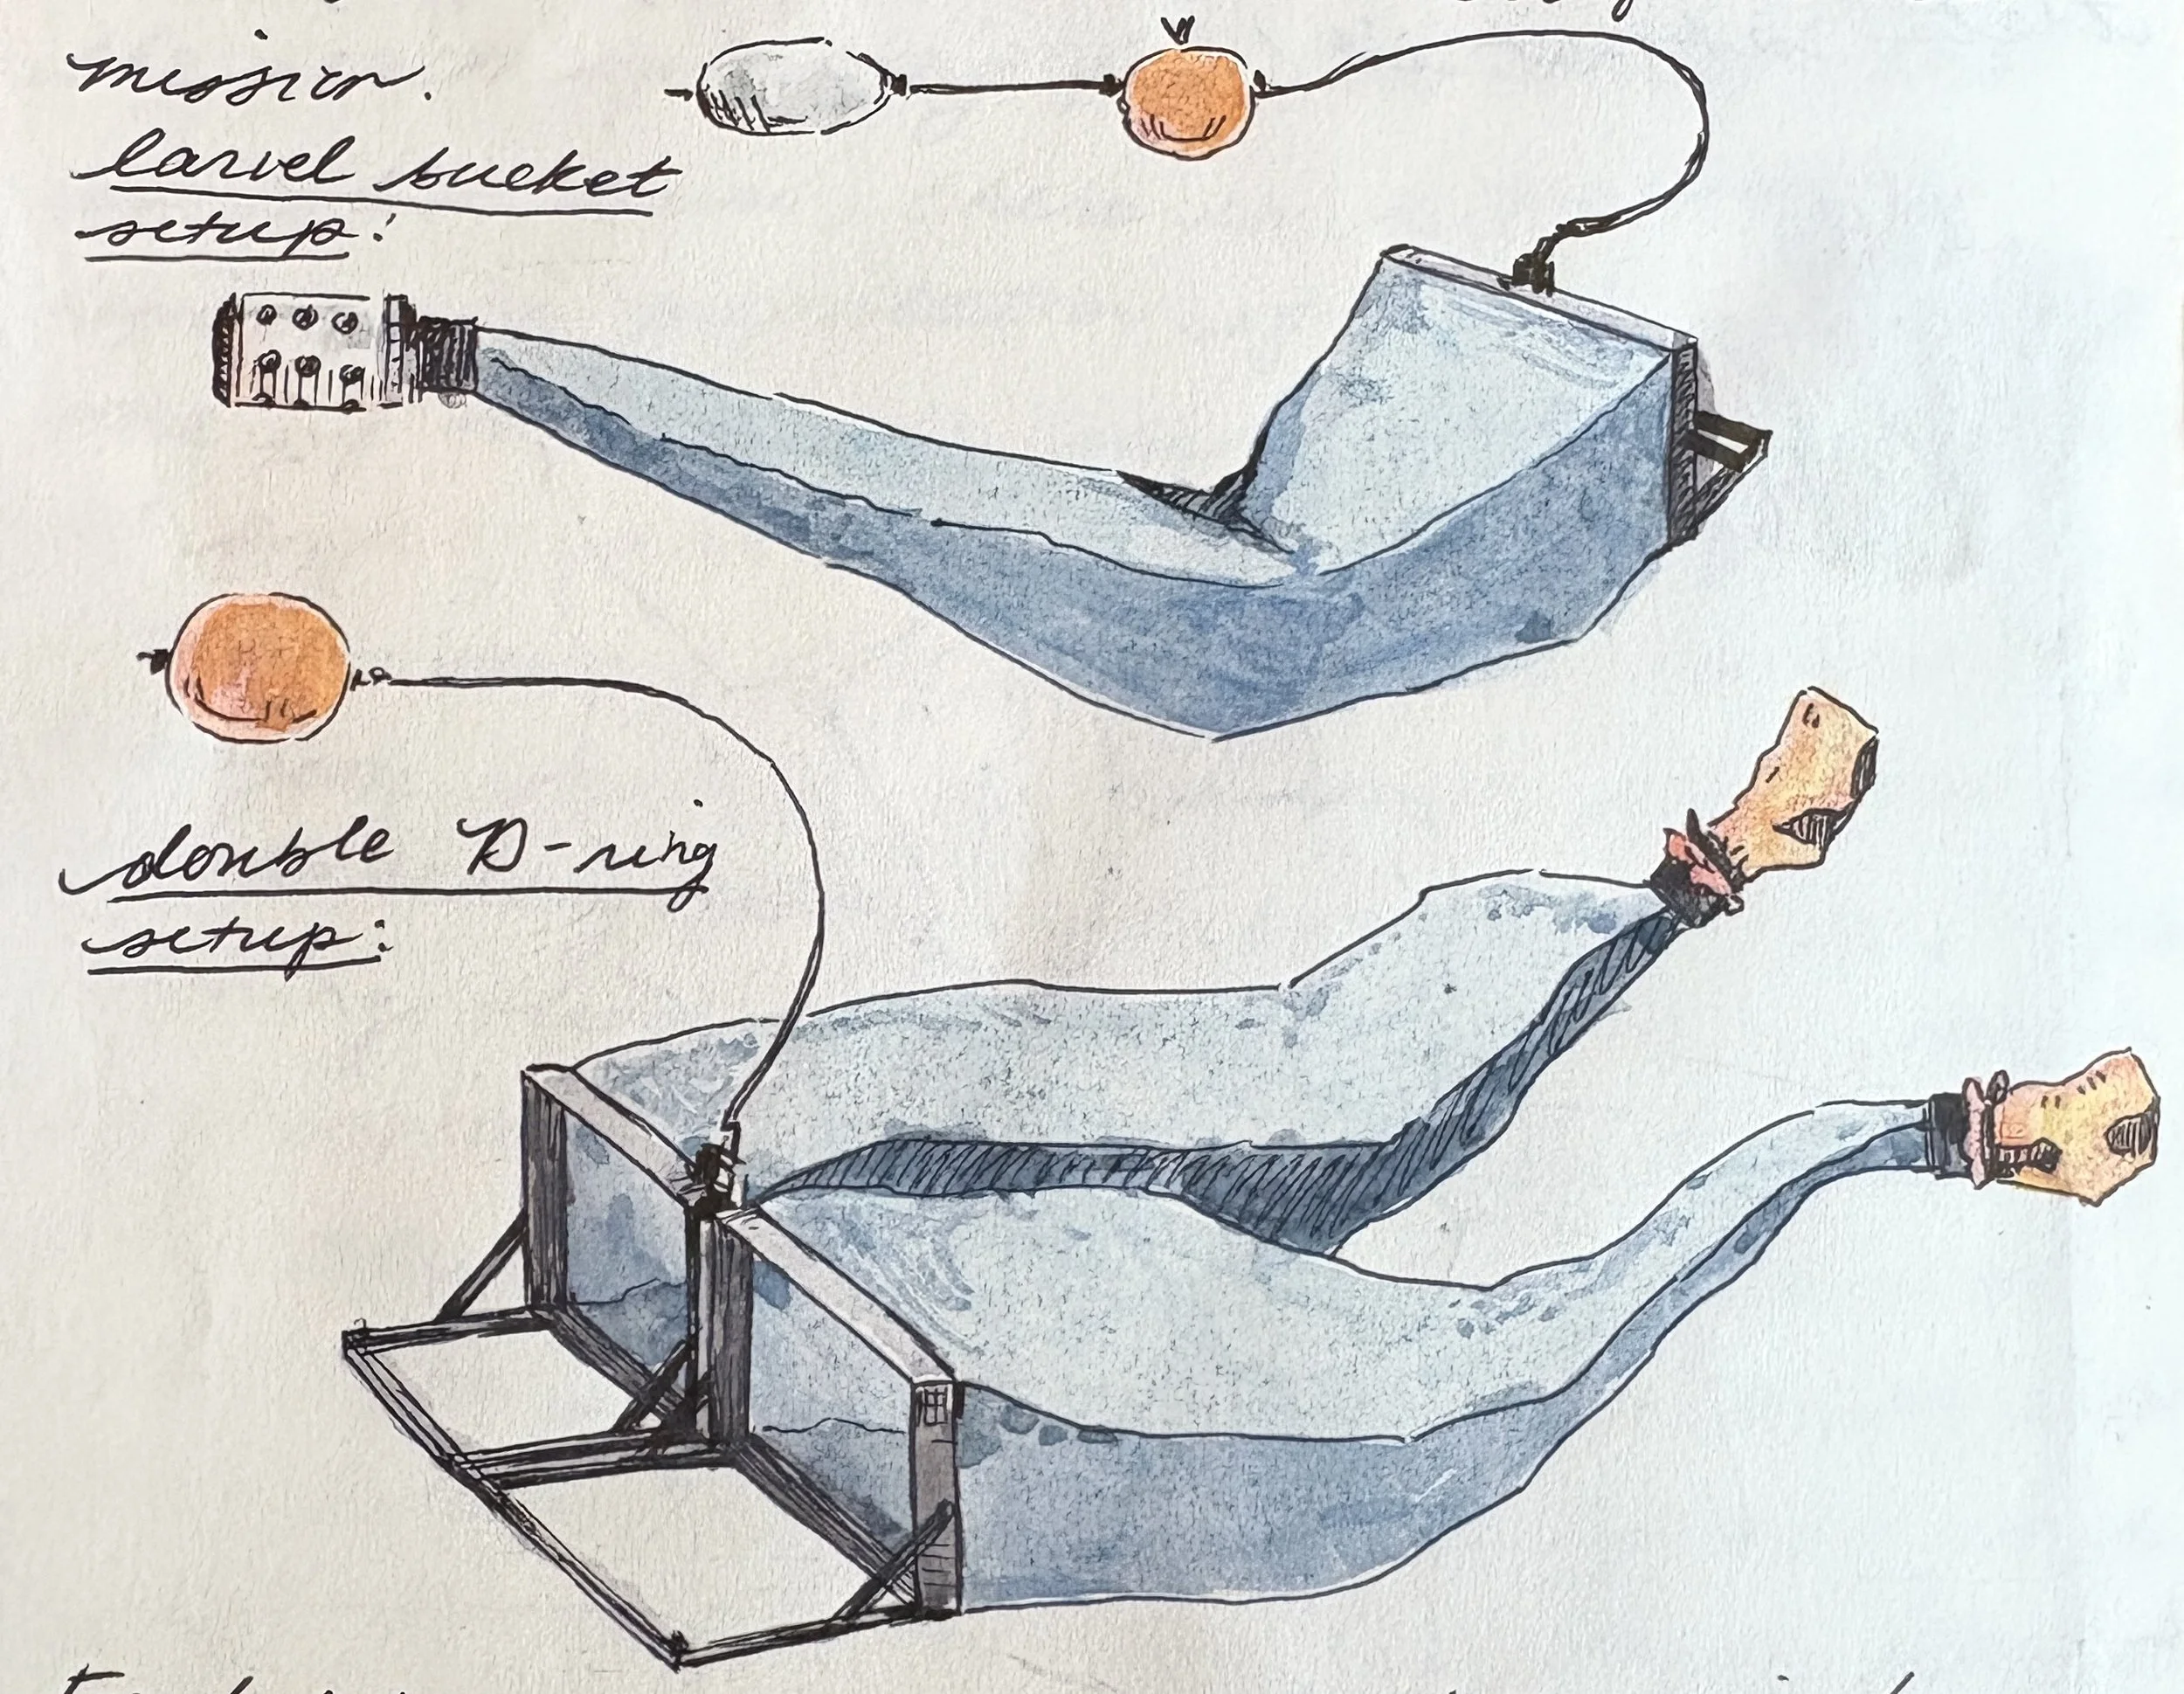 mission.
larvel bucket
setup:
double D-ring
setup: